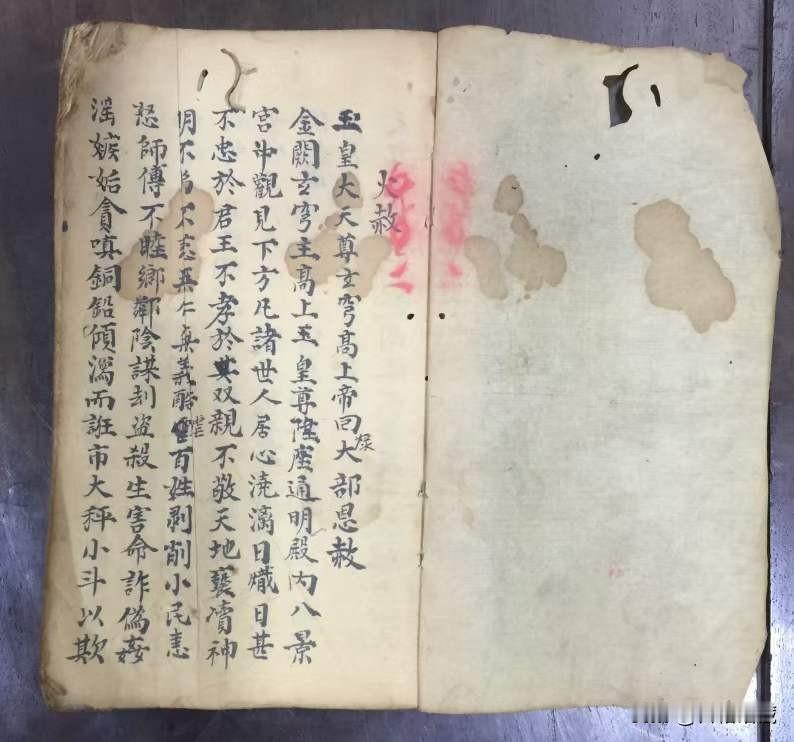 火赦
玉皇大天尊玄穹高上帝回大部恩赦
金闕玄穹主高上玉皇尊陞座通明殿內八景
宮中觀見下方凡諸世人居心澆漓日熾日甚
不忠於君王不孝於其双親不敬天地褻瀆神
明不 不 棄仁棄義酷 百姓剥削小民恚
怒師傅不睦鄉鄰陰謀刦盗殺生害命詐偽姦
滛嫉妬貪嗔銅鉛傾瀉而誑市大秤小斗以欺